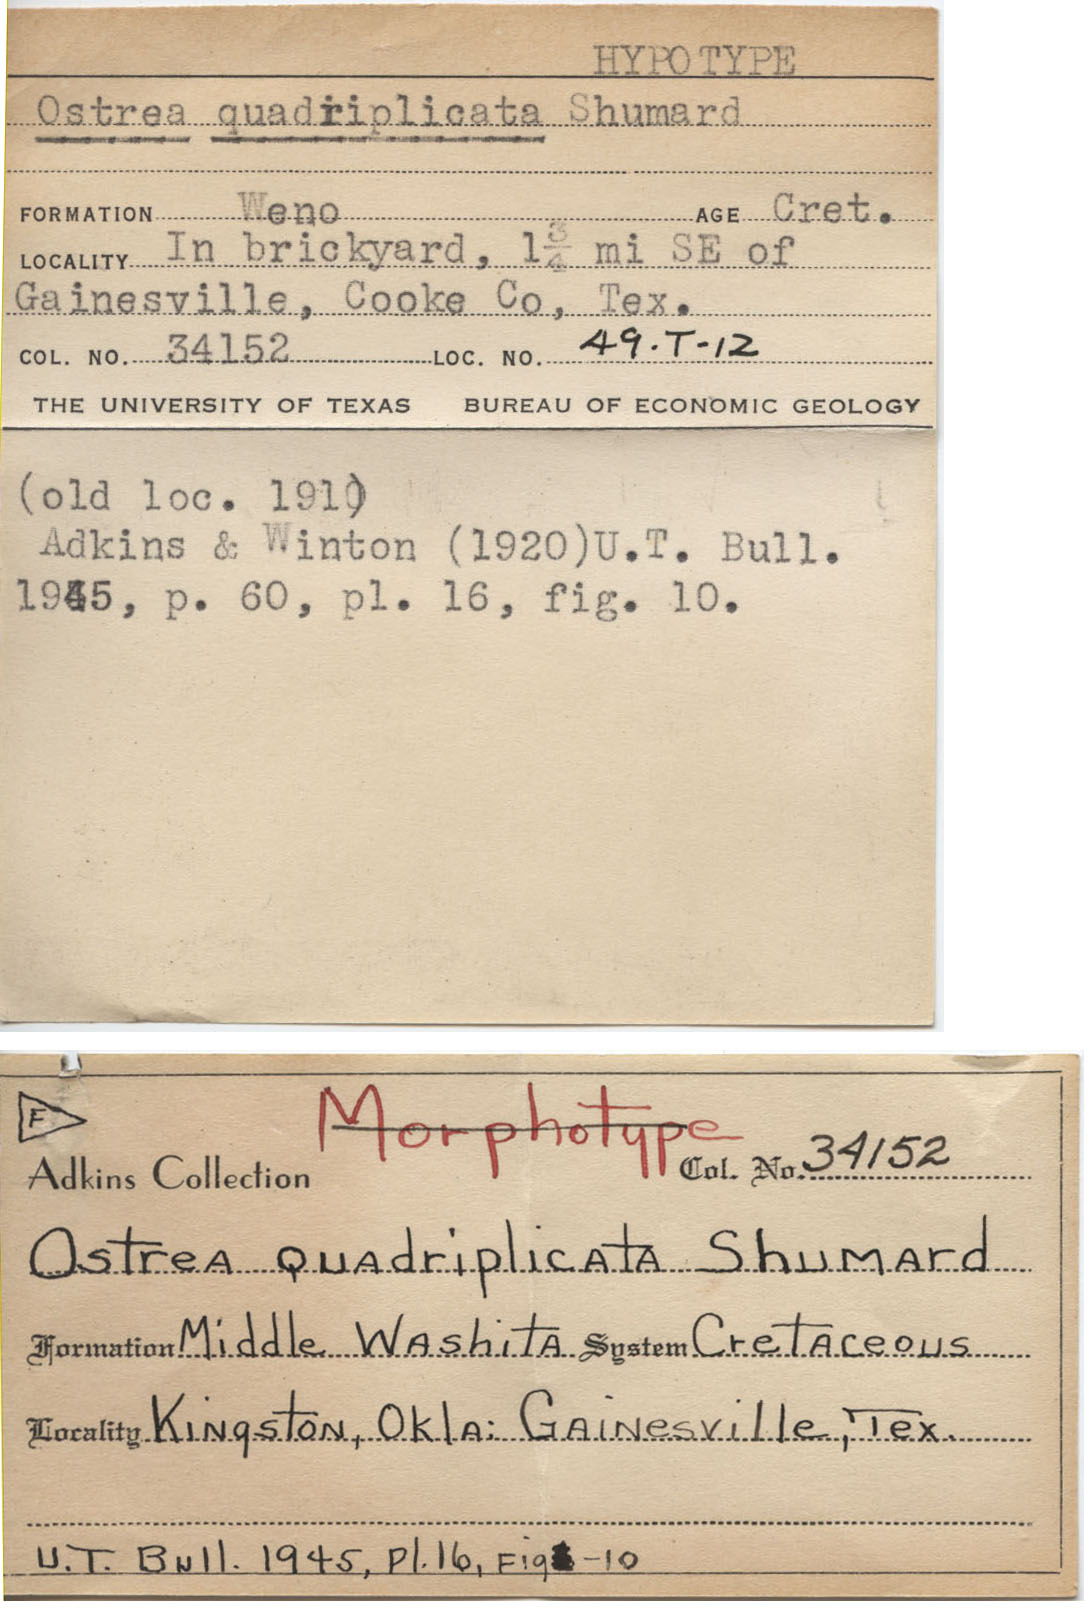 HYPOTYPE
Ostrea quadriplicata Shumard
FORMATION Weno AGE Cret.
LOCALITY In brickyard, 1 3/4 mi SE of
Gainesville, Cooke Co, Tex.
COL. NO. 34152 LOC. NO. 49-T-12
THE UNIVERSITY OF TEXAS BUREAU OF ECONOMIC GEOLOGY
(old loc. 191)
Adkins & Winton (1920)U.T. Bull.
1945, p. 60, pl. 16, fig. 10.
F
Morphotype
Adkins Collection Col. No. 34152
Ostrea quadriplicata Shumard
Formation Middle Washita System Cretaceous
Locality Kingston, Okla: Gainesville, Tex.
U.T. Bull. 1945, Pl.16, Fig -10